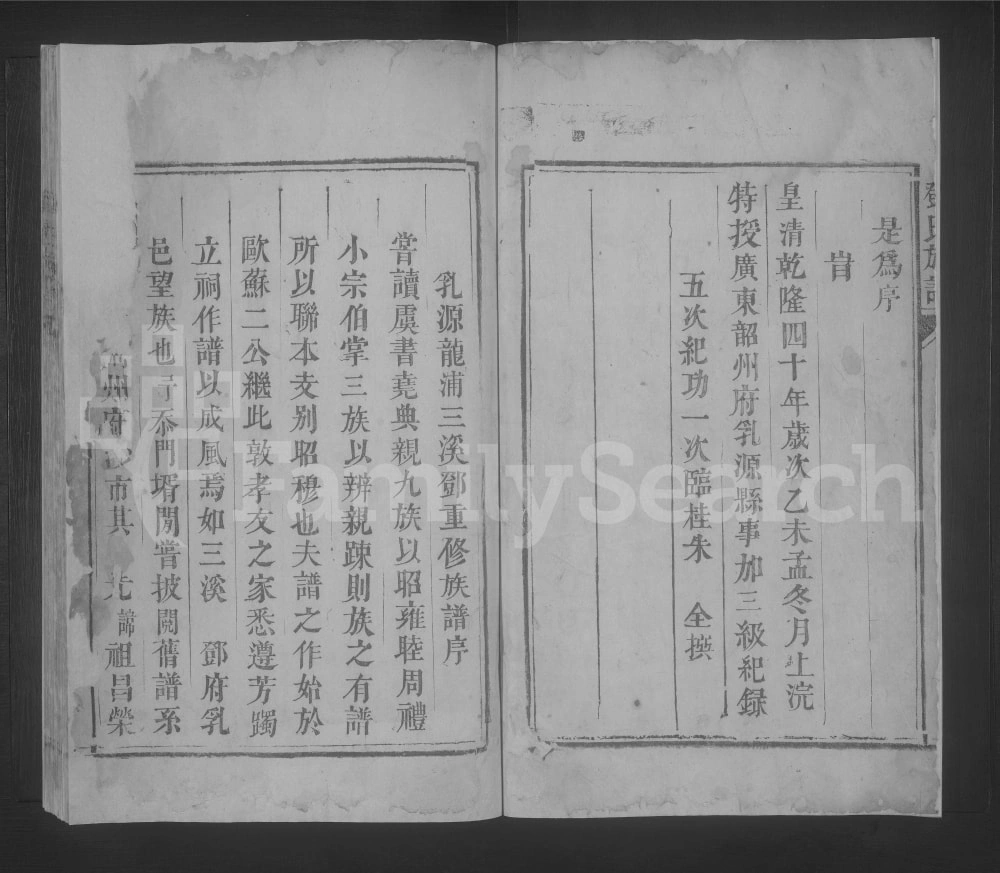 鄧氏族譜
是為序
旹
皇清乾隆四十年歲次乙未孟冬月上浣
特授廣東韶州府乳源縣事加三級紀録
五次紀功一次臨桂朱　仝撰
乳源龍浦三溪鄧重修族譜序
甞讀虞書堯典親九族以昭雍睦周禮
小宗伯掌三族以辨親踈則族之有譜
所以聯本支别昭穆也夫譜之作始於
歐蘇二公繼此敦孝友之家悉遵芳躅
立祠作譜以成風焉如三溪　鄧府乳
邑望族也　忝門壻閒甞披閱舊譜系
州府　市其　先諱祖昌榮
FamilySearch